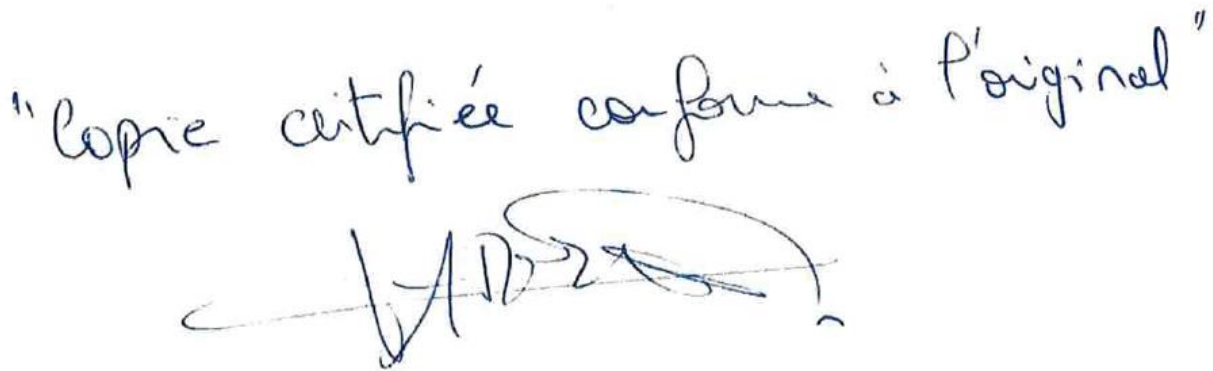 "Copie certifiée conforme à l'original"